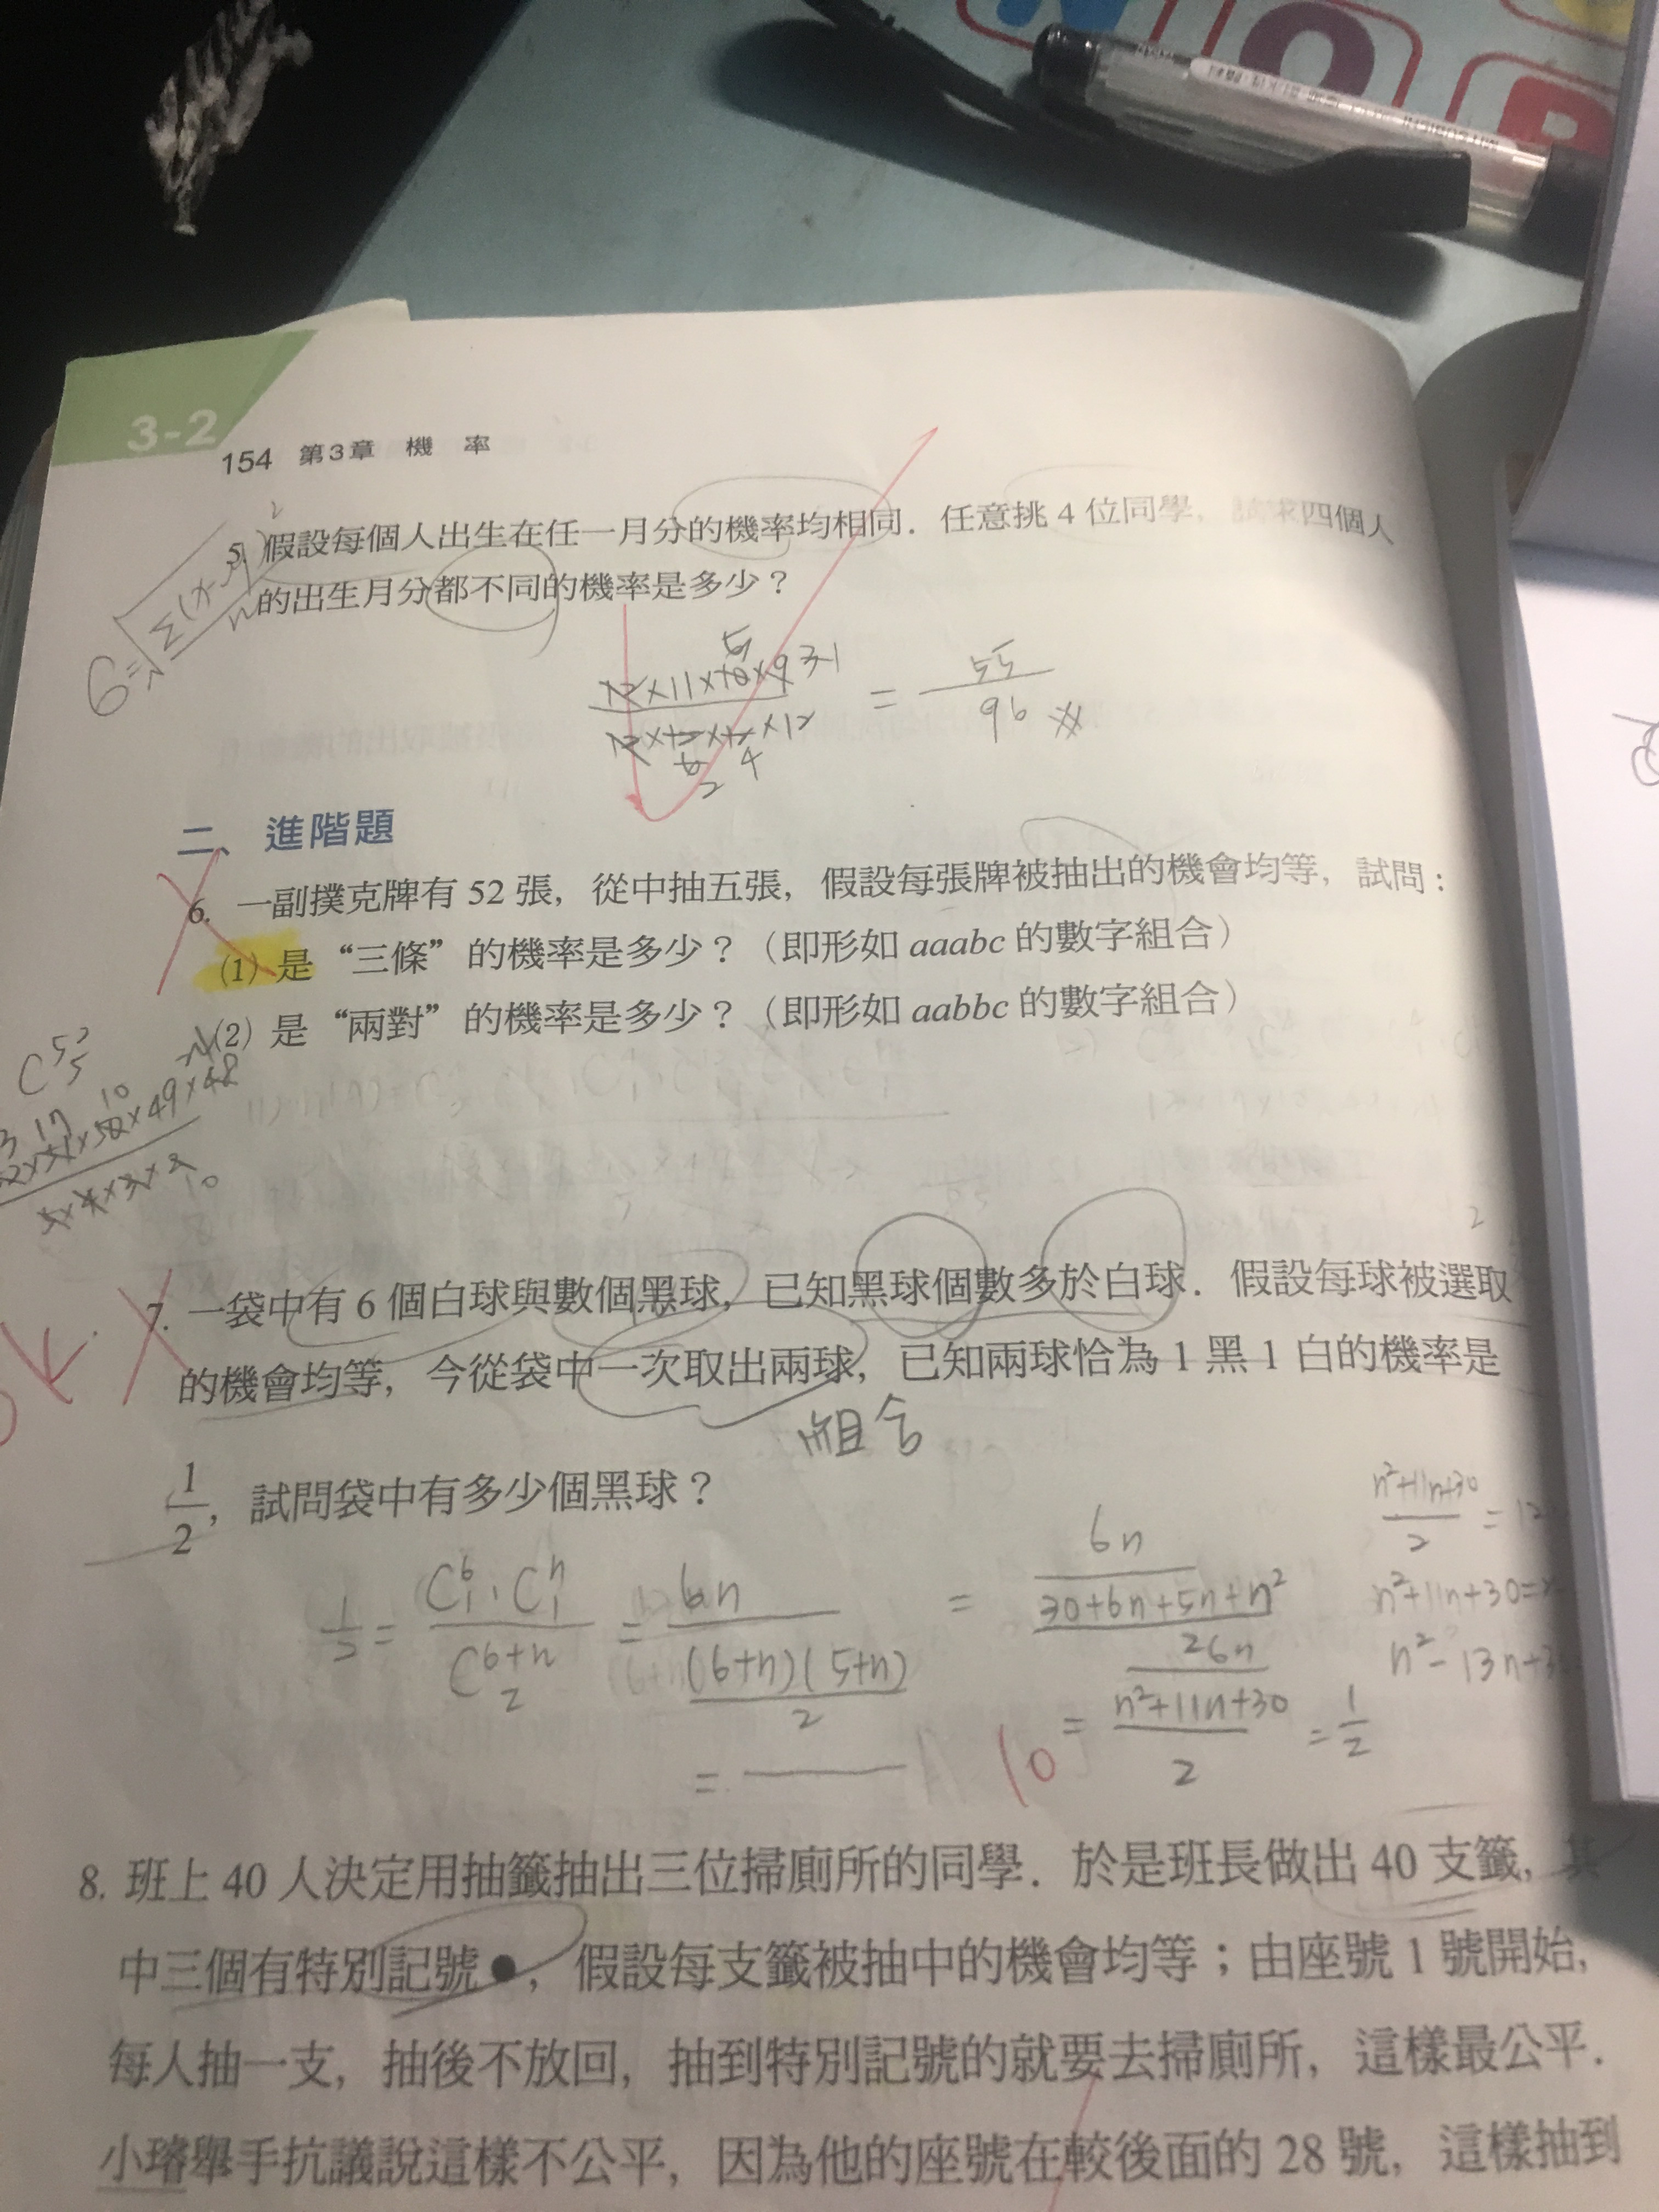 3-2
154 第3章 機 率
5. 假設每個人出生在任一月分的機率均相同．任意挑 4 位同學，試求四個人
的出生月分都不同的機率是多少？
12×11×10×9 3-1
5
12×12×12×12
6 4
2
= 55/96
二、進階題
6. 一副撲克牌有 52 張，從中抽五張，假設每張牌被抽出的機會均等，試問：
(1) 是“三條”的機率是多少？（即形如 aaabc 的數字組合）
(2) 是“兩對”的機率是多少？（即形如 aabbc 的數字組合）
7. 一袋中有 6 個白球與數個黑球，已知黑球個數多於白球．假設每球被選取
的機會均等，今從袋中一次取出兩球，已知兩球恰為 1 黑 1 白的機率是
組合
1/2，試問袋中有多少個黑球？
1/2 = C⁶₁·Cⁿ₁ / C⁶⁺ⁿ₂ = 6n / ((6+n)(5+n)/2) = 6n / (30+6n+5n+n²
= 26n / ((n²+11n+30)/2) = 1/2
(n²+11n+30)/2 =
n²+11n+30=
n²-13n+3
10
8. 班上 40 人決定用抽籤抽出三位掃廁所的同學．於是班長做出 40 支籤，其
中三個有特別記號●，假設每支籤被抽中的機會均等；由座號 1 號開始，
每人抽一支，抽後不放回，抽到特別記號的就要去掃廁所，這樣最公平．
小璿舉手抗議說這樣不公平，因為他的座號在較後面的 28 號，這樣抽到